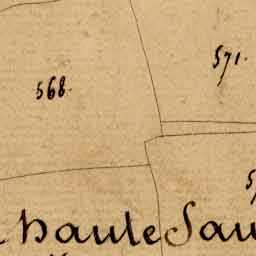 571.
568.
haute Sau